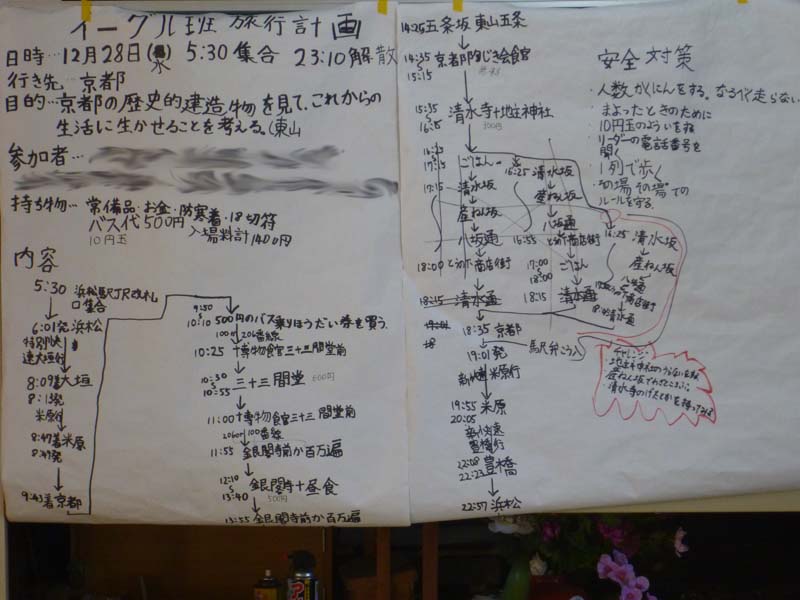 イーグル班 旅行計画
日時…12月28日(水) 5:30集合 23:10解散
行き先 京都
目的…京都の歴史的建造物を見て、これからの
生活に生かせることを考える。(東山
参加者…
持ち物… 常備品・お金・防寒着・18切符
バス代500円 入場料計1400円
10円玉
内容
5:30 浜松駅JR改札
口集合
6:01発 浜松
特別快
速大垣行
8:09着大垣
8:11発
米原行
8:47着米原
8:49発
9:43着京都
9:50
10:10 500円のバス乗りほうだい券を買う。
100or206番線
10:25 博物館三十三間堂前
10:30
10:55 三十三間堂 600円
11:00 博物館三十三間堂前
206or100番線
11:55 銀閣寺前か百万遍
12:10
13:40 銀閣寺+昼食
500円
13:55 銀閣寺前か百万遍
14:25 五条坂 東山五条
14:35
15:15
15:35
16:15 清水寺+地主神社
300円
16:15
17:15
ごはん
清水坂
産ねん坂
八坂通
18:00
商店街
18:15 清水通
16:25 清水坂
産ねん坂
八坂通
16:55
商店街
17:00
18:00
ごはん
18:15 清水通
16:25 清水坂
産ねん坂
八坂通
商店街
清水通
18:35 京都
19:01発 駅弁こう入
新快速 米原行
19:55 米原
20:05
新快速
豊橋行
22:08 豊橋
22:23
22:57 浜松
安全対策
・人数かくにんをする。なるべく走らない
・まよったときのために
10円玉のよういをする
リーダーの電話番号を
聞く
・1列で歩く
・その場その場での
ルールを守る。
チャレンジ